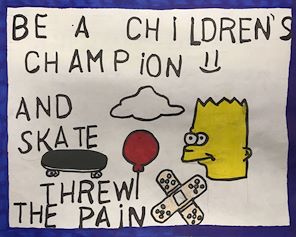 BE A CHILDREN'S
CHAMPION
AND
SKATE
THREW
THE PAIN